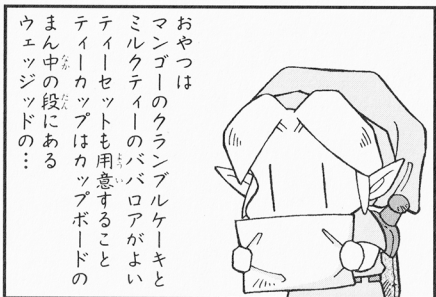 おやつは
マンゴーのクランブルケーキと
ミルクティーのババロアがよい
ティーセットも用意すること
ティーカップはカップボードの
まん中の段にある
ウェッジッドの…